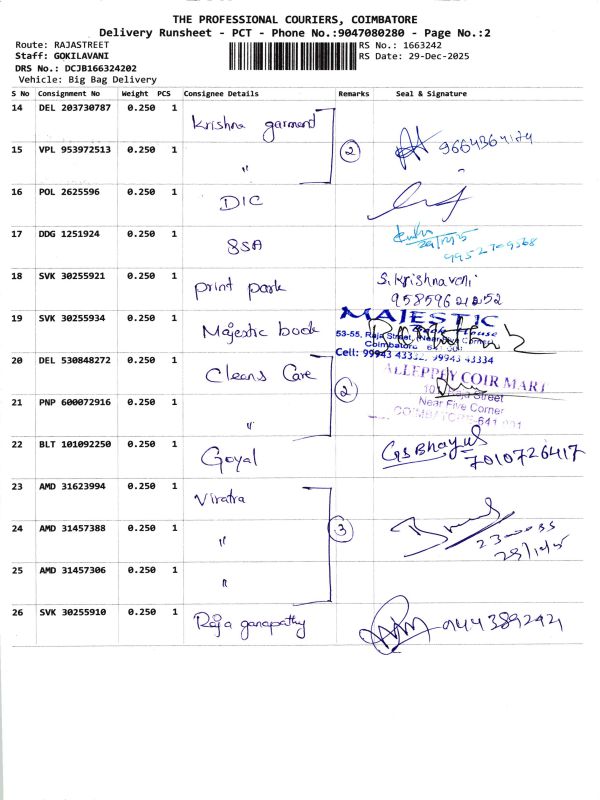 THE PROFESSIONAL COURIERS, COIMBATORE
Delivery Runsheet - PCT - Phone No.:9047080280 - Page No.:2
Route: RAJASTREET
RS No.: 1663242
Staff: GOKILAVANI
RS Date: 29-Dec-2025
DRS No.: DCJB166324202
Vehicle: Big Bag Delivery
S No Consignment No Weight PCS Consignee Details Remarks Seal & Signature
14 DEL 203730787 0.250 1 Krishna garmend
15 VPL 953972513 0.250 1 " 2
16 POL 2625596 0.250 1 DIC
17 DDG 1251924 0.250 1 SSA
29/12/25
9952709568
18 SVK 30255921 0.250 1 print park S. Krishnaveni
9585962252
19 SVK 30255934 0.250 1 Majestic book MAJESTIC
53-55, Raja Street, (Near Five Corner)
Coimbatore 641 001
Cell: 99943 43332, 99943 43334
20 DEL 530848272 0.250 1 Cleans Care ALLEPPEY COIR MART
Raja Street
21 PNP 600072916 0.250 1 " 2 Near Five Corner
COIMBATORE-641 001
22 BLT 101092250 0.250 1 Goyal GSBhayul
7010726417
23 AMD 31623994 0.250 1 Viratra
24 AMD 31457388 0.250 1 " 3
25 AMD 31457306 0.250 1 "
26 SVK 30255910 0.250 1 Raja ganapathy